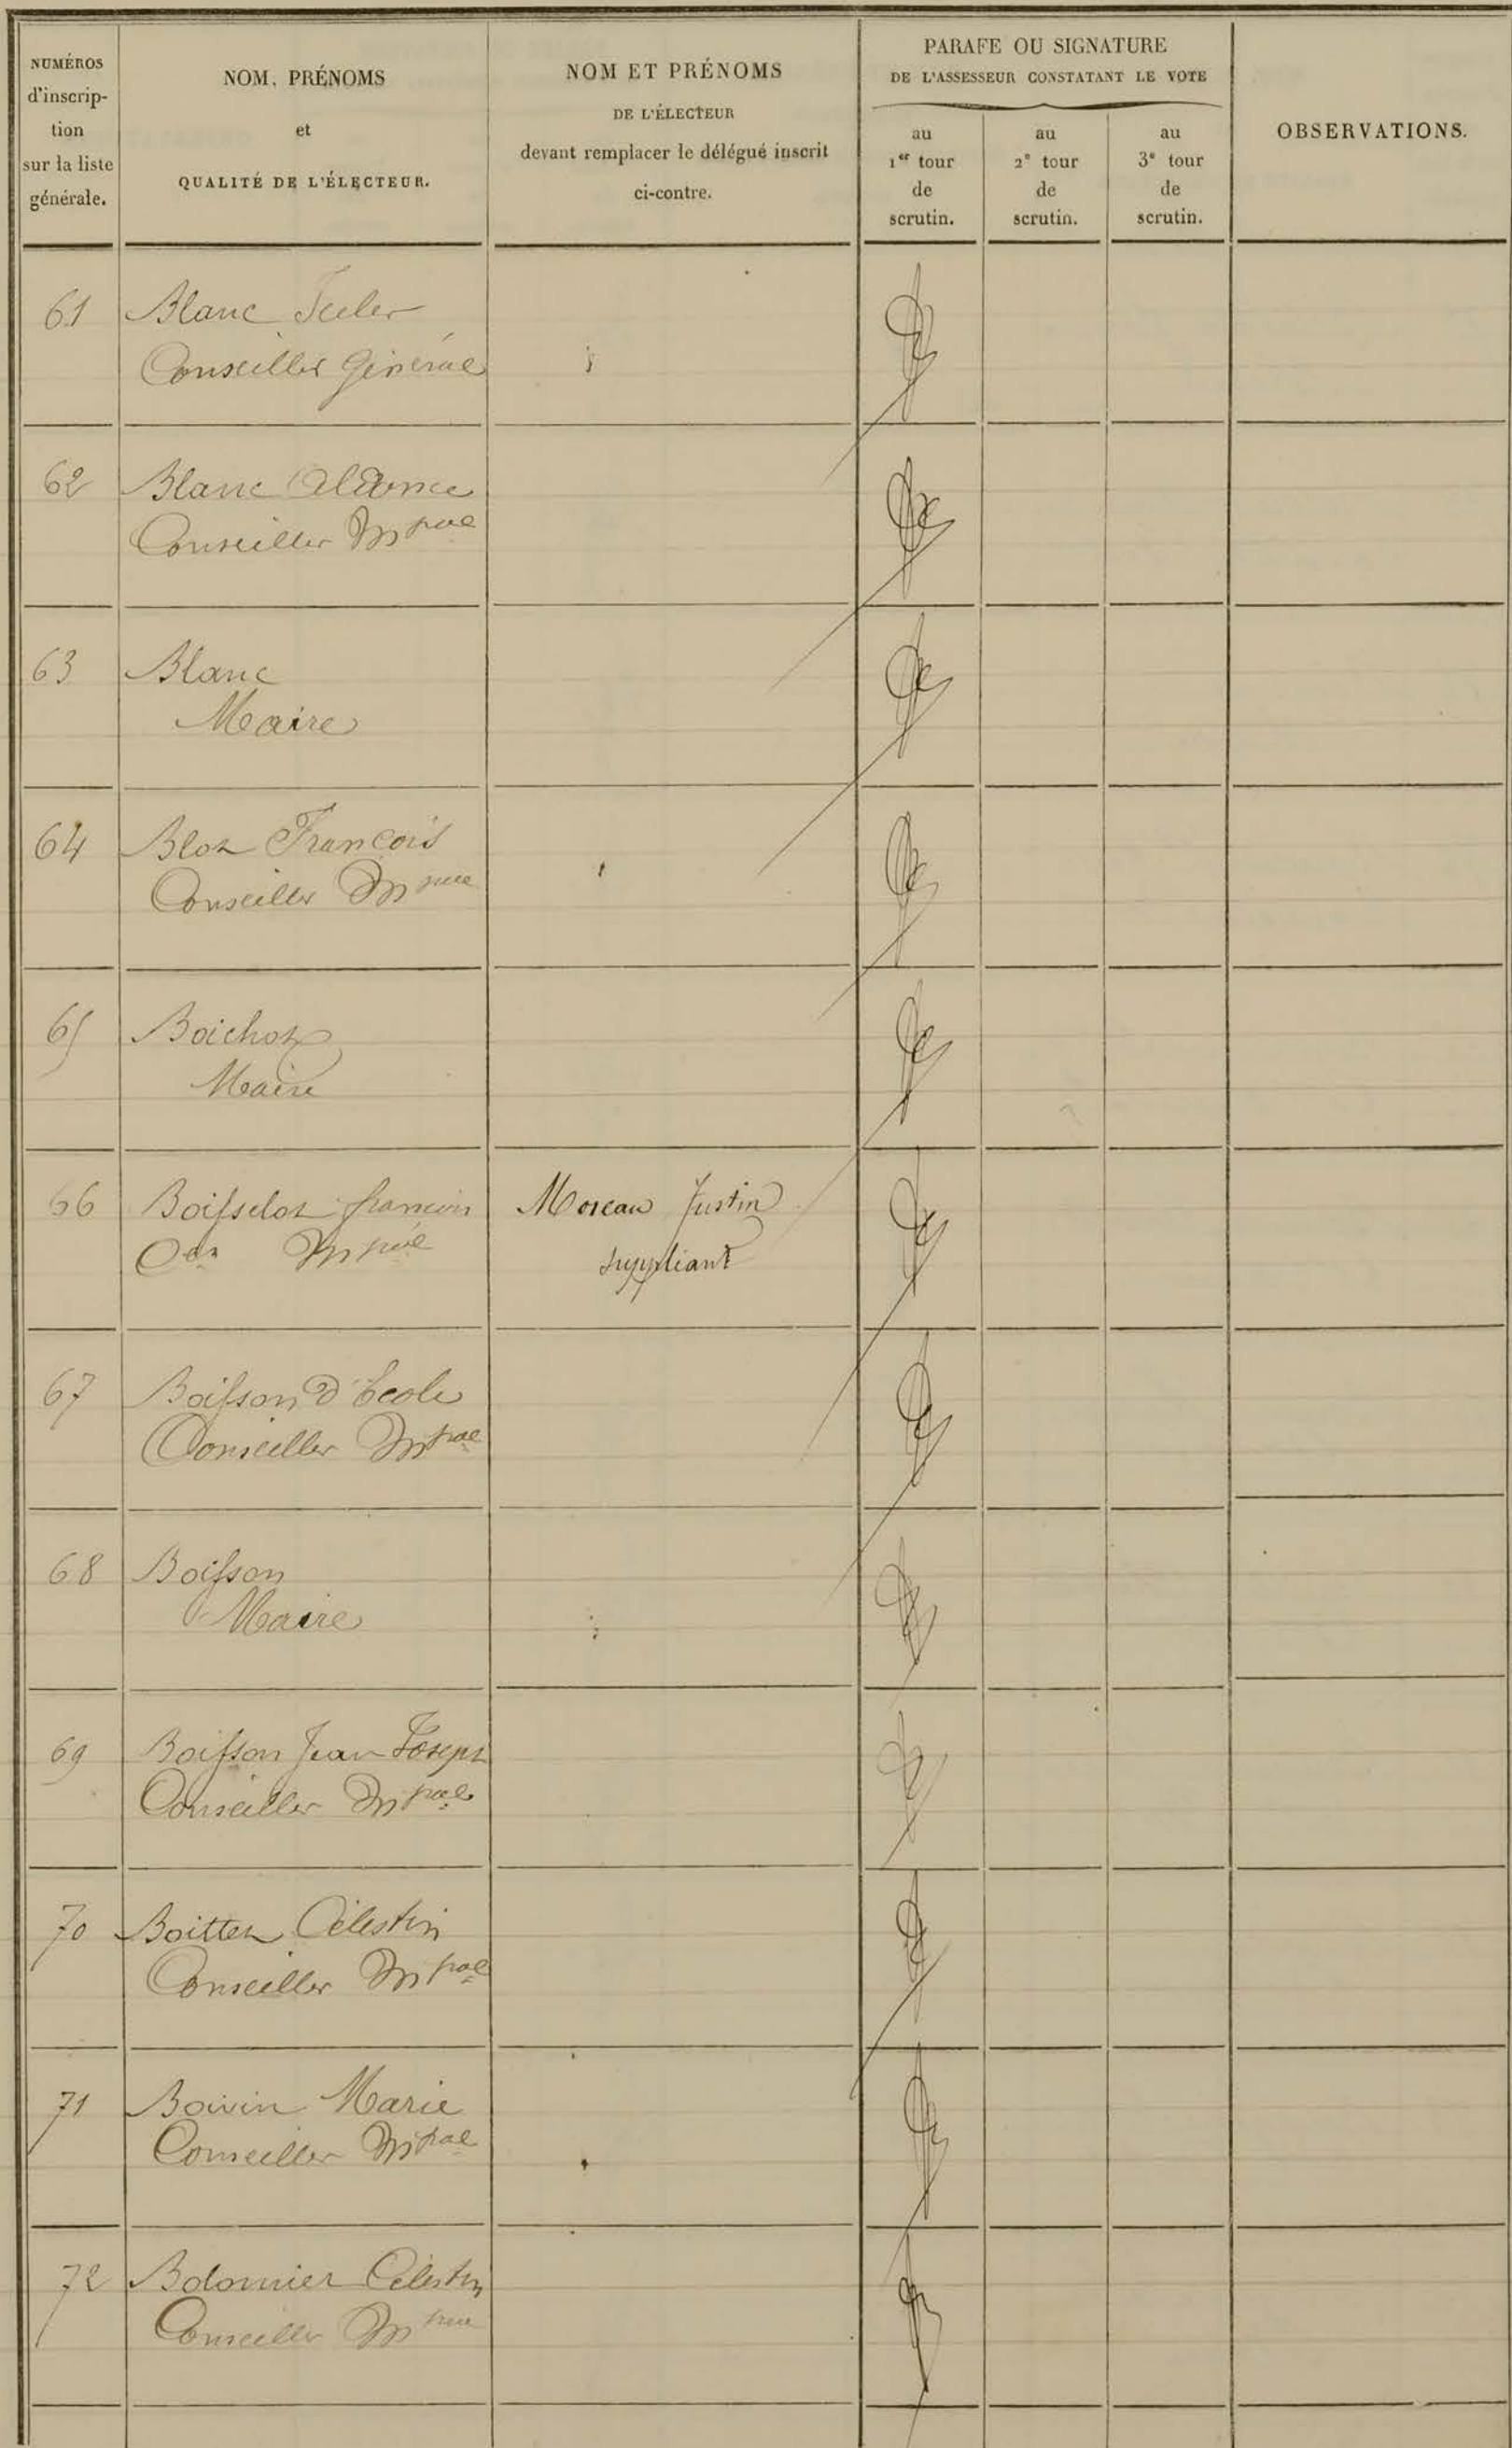 NUMÉROS
d'inscrip-
tion
sur la liste
générale.
NOM, PRÉNOMS
et
QUALITÉ DE L'ÉLECTEUR.
NOM ET PRÉNOMS
DE L'ÉLECTEUR
devant remplacer le délégué inscrit
ci-contre.
PARAFE OU SIGNATURE
DE L'ASSESSEUR CONSTATANT LE VOTE
au
1er tour
de
scrutin.
au
2e tour
de
scrutin.
au
3e tour
de
scrutin.
OBSERVATIONS.
61 Blanc Jules
Conseiller Général
62 Blanc
Conseiller Mpal
63 Blanc
Maire
64 Blot François
Conseiller Mpal
65 Boichot
Maire
66 Boisselot françois Moreau Justin
Cer Mpal suppléant
67 Boisson d'Ecole
Conseiller Mpal
68 Boisson
Maire
69 Boisson Jean Joseph
Conseiller Mpal
70 Boittet Célestin
Conseiller Mpal
71 Boivin Marie
Conseiller Mpal
72 Bolomier Célestin
Conseiller Mpal